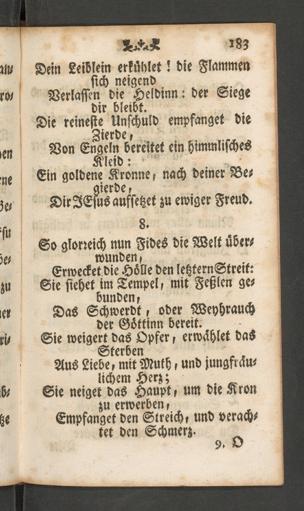 183
Dein Leiblein erkühlet! die Flammen
sich neigend
Verlassen die Heldinn: der Siege
dir bleibt.
Die reineste Unschuld empfanget die
Zierde,
Von Engeln bereitet ein himmlisches
Kleid:
Ein goldene Kronne, nach deiner Be-
gierde,
Dir JEsus aufsetzet zu ewiger Freud.
8.
So glorreich nun Fides die Welt über-
wunden,
Erwecket die Hölle den letztern Streit:
Sie siehet im Tempel, mit Feßlen ge-
bunden,
Das Schwerdt, oder Weyhrauch
der Göttinn bereit.
Sie weigert das Opfer, erwählet das
Sterben
Aus Liebe, mit Muth, und jungfräu-
lichem Herz;
Sie neiget das Haupt, um die Kron
zu erwerben,
Empfanget den Streich, und verach-
tet den Schmerz.
9. O